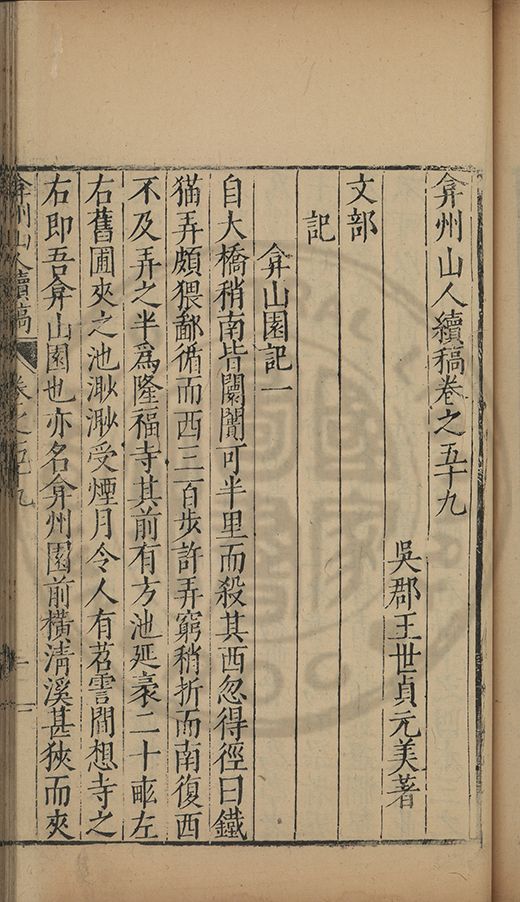 弇州山人續稿卷之五十九
吳郡王世貞元美著
文部
記
弇山園記一
自大橋稍南皆闤闠可半里而殺其西忽得徑曰鐵
猫弄頗猥鄙循而西三百步許弄窮稍折而南復西
不及弄之半爲隆福寺其前有方池延袤二十畝左
右舊圃夾之池渺渺受煙月令人有苕霅間想寺之
右即吾弇山園也亦名弇州園前橫清溪甚狹而夾
弇州山人續稿
卷之五十九
一